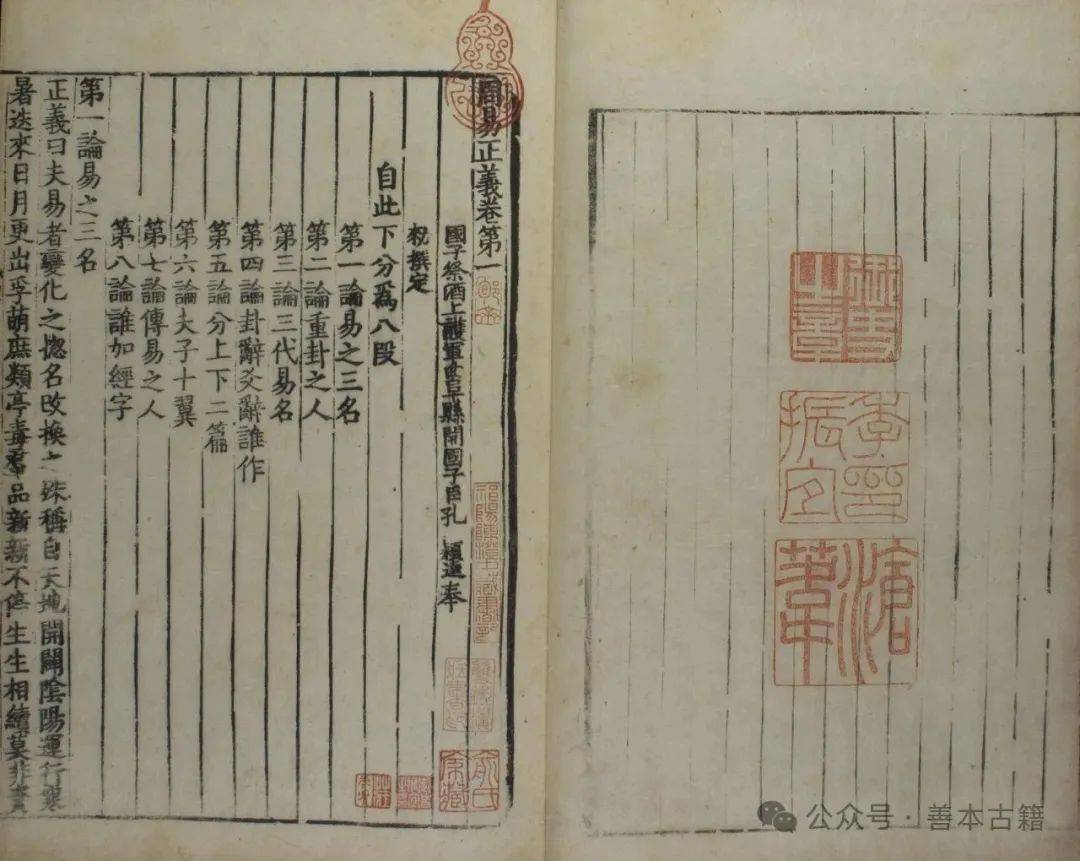 御史之章
季振宜印
滄葦
周易正義卷第一
祁陽陳澄中藏書記
國子祭酒上護軍曲阜縣開國子臣孔 穎達奉
敕撰定
自此下分爲八段
第一論易之三名
第二論重卦之人
第三論三代易名
第四論卦辭爻辭誰作
第五論分上下二篇
第六論夫子十翼
第七論傳易之人
第八論誰加經字
第一論易之三名
正義曰夫易者變化之揔名改換之殊稱自天地開闢陰陽運行寒
暑迭來日月更出孚萌庶類亭毒羣品新新不停生生相續莫非資
公众号 · 善本古籍